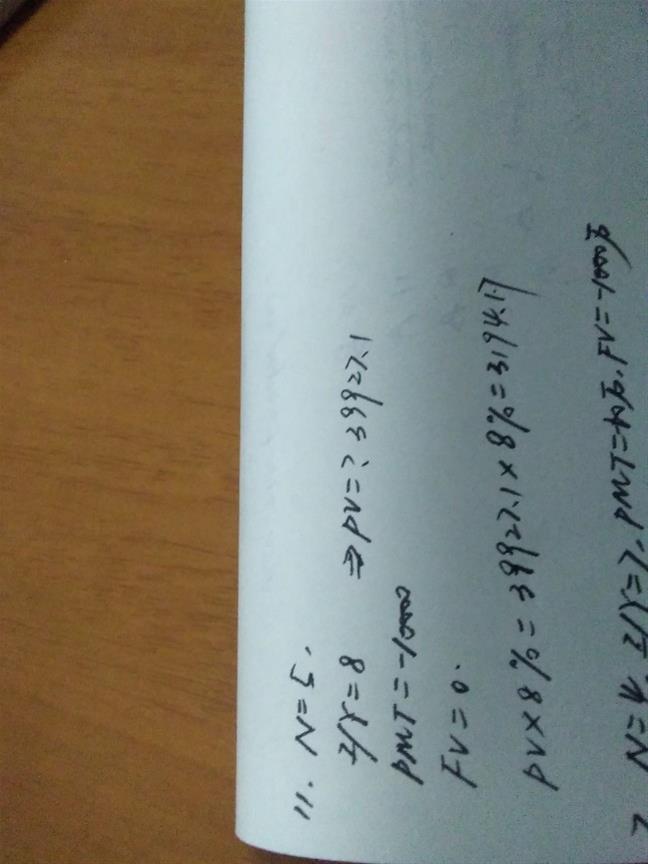 11. N=5.
I/Y=8 ⇒PV=? 39927.1
PMT=-10000
FV=0.
PV×8%=39927.1×8%=3194.17
N=4. I/Y=7. PMT= FV=-1000万